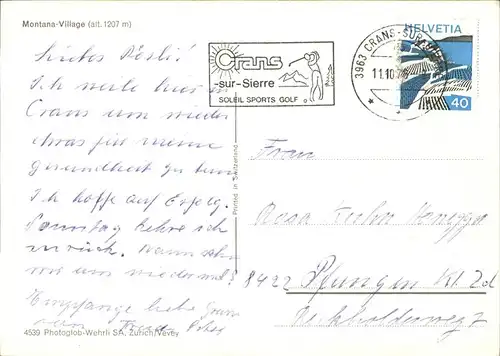 Montana-Village (alt. 1207 m)
Liebes Rösli!
Ich weile hier in
Crans um wieder
etwas für meine
Gesundheit zu tun.
Ich hoffe auf Erfolg.
Sonntag kehre ich
zurück. Wann sehn
wir uns wiedermal?
Empfange liebe Grüsse
von
4539 Photoglob-Wehrli SA, Zürich/Vevey
Printed in Switzerland
Crans
-sur-Sierre
SOLEIL SPORTS GOLF
3963 CRANS-SUR-
11.10.
HELVETIA
40
Frau
Rosa Kuhn
8422 Pfungen Kt. Zch